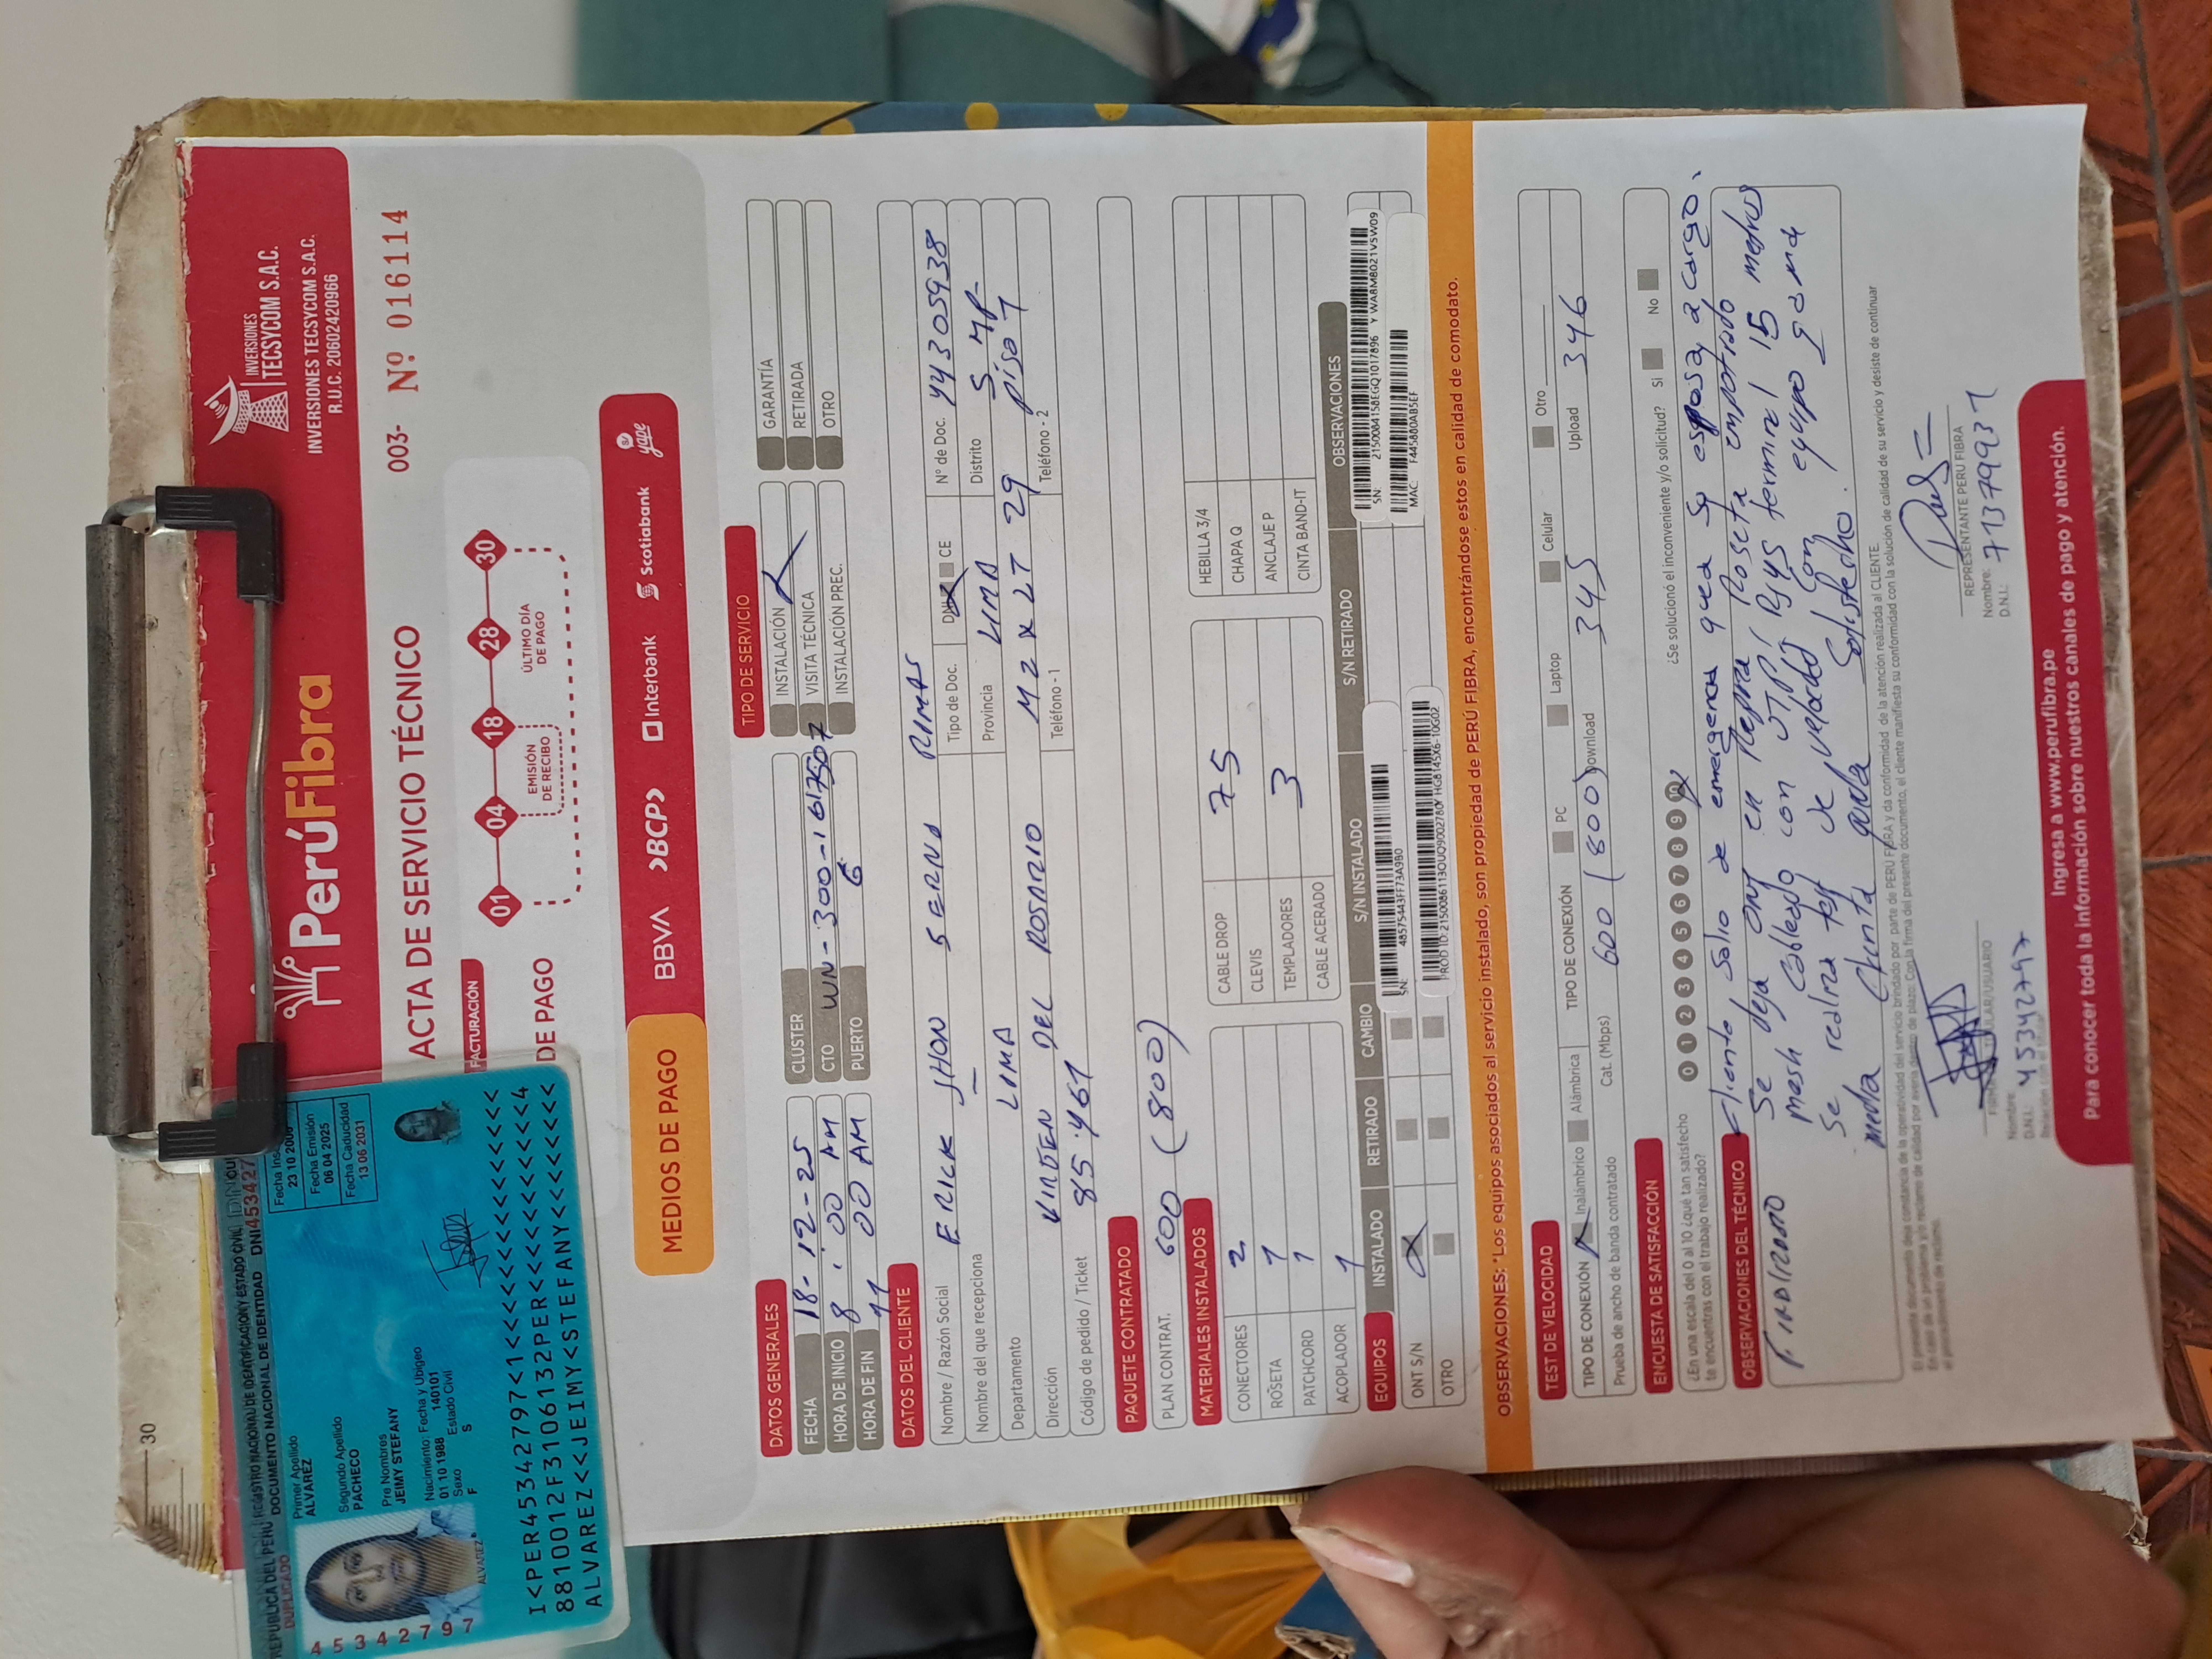 30
REPUBLICA DEL PERÚ REGISTRO NACIONAL DE IDENTIFICACIÓN Y ESTADO CIVIL
DUPLICADO
DOCUMENTO NACIONAL DE IDENTIDAD DNI453427
Primer Apellido
ALVAREZ
Segundo Apellido
PACHECO
Pre Nombres
JEIMY STEFANY
Nacimiento: Fecha y Ubigeo
01 10 1988 140101
Sexo Estado Civil
F S
Fecha Ins
23 10 2006
Fecha Emisión
06 04 2025
Fecha Caducidad
13 06 2031
45342797
ALVAREZ
I<PER45342797<1<<<<<<<<<<<<<<<
8810012F3106132PER<<<<<<<<<<<4
ALVAREZ<<JEIMY<STEFANY<<<<<<<<
PerúFibra
INVERSIONES
TECSYCOM S.A.C.
INVERSIONES TECSYCOM S.A.C.
R.U.C. 20602420966
ACTA DE SERVICIO TÉCNICO
003- Nº 016114
FACTURACIÓN
DE PAGO
01 04 18 28 30
EMISIÓN
DE RECIBO
ÚLTIMO DÍA
DE PAGO
MEDIOS DE PAGO
BBVA BCP Interbank Scotiabank yape
DATOS GENERALES
FECHA 18-12-25
HORA DE INICIO 8:00 AM
HORA DE FIN 11 00 AM
CLUSTER
CTO WN-300-1617507
PUERTO 6
TIPO DE SERVICIO
INSTALACIÓN
VISITA TÉCNICA
INSTALACIÓN PREC.
GARANTÍA
RETIRADA
OTRO
DATOS DEL CLIENTE
Nombre / Razón Social ERICK JHON SERNA RIMAS
Nombre del que recepciona — Tipo de Doc. DNI CE Nº de Doc. 44305938
Departamento LIMA Provincia LIMA Distrito S.MP-
Dirección VIRGEN DEL ROSARIO MZ X LT 29 piso 1
Código de pedido / Ticket 85.461 Teléfono - 1 Teléfono - 2
PAQUETE CONTRATADO
PLAN CONTRAT. 600 (800)
MATERIALES INSTALADOS
CONECTORES 2
ROSETA 1
PATCHCORD 1
ACOPLADOR 1
CABLE DROP 75
CLEVIS
TEMPLADORES 3
CABLE ACERADO
HEBILLA 3/4
CHAPA Q
ANCLAJE P
CINTA BAND-IT
EQUIPOS INSTALADO RETIRADO CAMBIO S/N INSTALADO S/N RETIRADO OBSERVACIONES
ONT S/N
OTRO
SN: 48575443FF73A9B0
PROD ID:2150086113OUQ9002780Y HG8145X6-10G02
SN: 2150084158EGQ1017896 Y WA8M8021V5W09
MAC: F44588DAB5EF
OBSERVACIONES: *Los equipos asociados al servicio instalado, son propiedad de PERÚ FIBRA, encontrándose estos en calidad de comodato.
TEST DE VELOCIDAD
TIPO DE CONEXIÓN Inalámbrico Alámbrica TIPO DE CONEXIÓN PC Laptop Celular Otro
Prueba de ancho de banda contratado Cat. (Mbps) 600 (800) Download 345 Upload 346
ENCUESTA DE SATISFACCIÓN
¿En una escala del 0 al 10 ¿qué tan satisfecho
te encuentras con el trabajo realizado?
0 1 2 3 4 5 6 7 8 9 10
¿Se solucionó el inconveniente y/o solicitud? Si No
OBSERVACIONES DEL TÉCNICO
Cliente salio de emergencia queda su esposa a cargo.
FINALIZADO
Se deja ONT en Repisa Roseta empotrado
mesh cableado con UTP, RJ45 terminal 15 metros
Se realiza test de velocidad con equipo gama
media Cliente queda Satisfecho.
El presente documento deja constancia de la operatividad del servicio brindado por parte de PERÚ FIBRA y da conformidad de la atención realizada al CLIENTE.
Nombre:
D.N.I.: 45342797
REPRESENTANTE PERU FIBRA
Nombre:
D.N.I.: 71379931
Ingresa a www.perufibra.pe
Para conocer toda la información sobre nuestros canales de pago y atención.